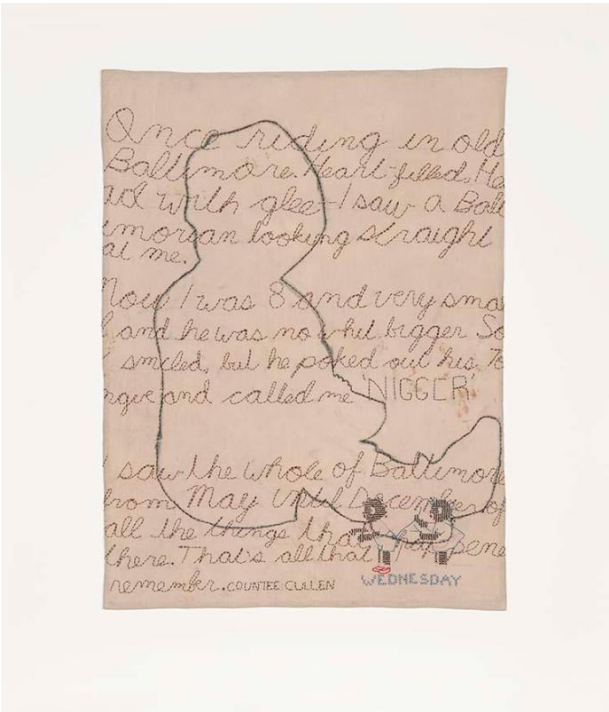 Once riding in old
Baltimore. Heart-filled, He
ad with glee-I saw a Balt
imorean looking straight
at me.
Now I was 8 and very smal
l and he was no whit bigger So
I smiled, but he poked out his To
ngue and called me 'NIGGER'
I saw the whole of Baltimore
from May until December of
all the things that happene
there. That's all that I
remember. COUNTEE CULLEN
WEDNESDAY